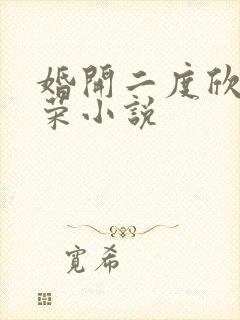 婚開二度欣
菜小說
寬希